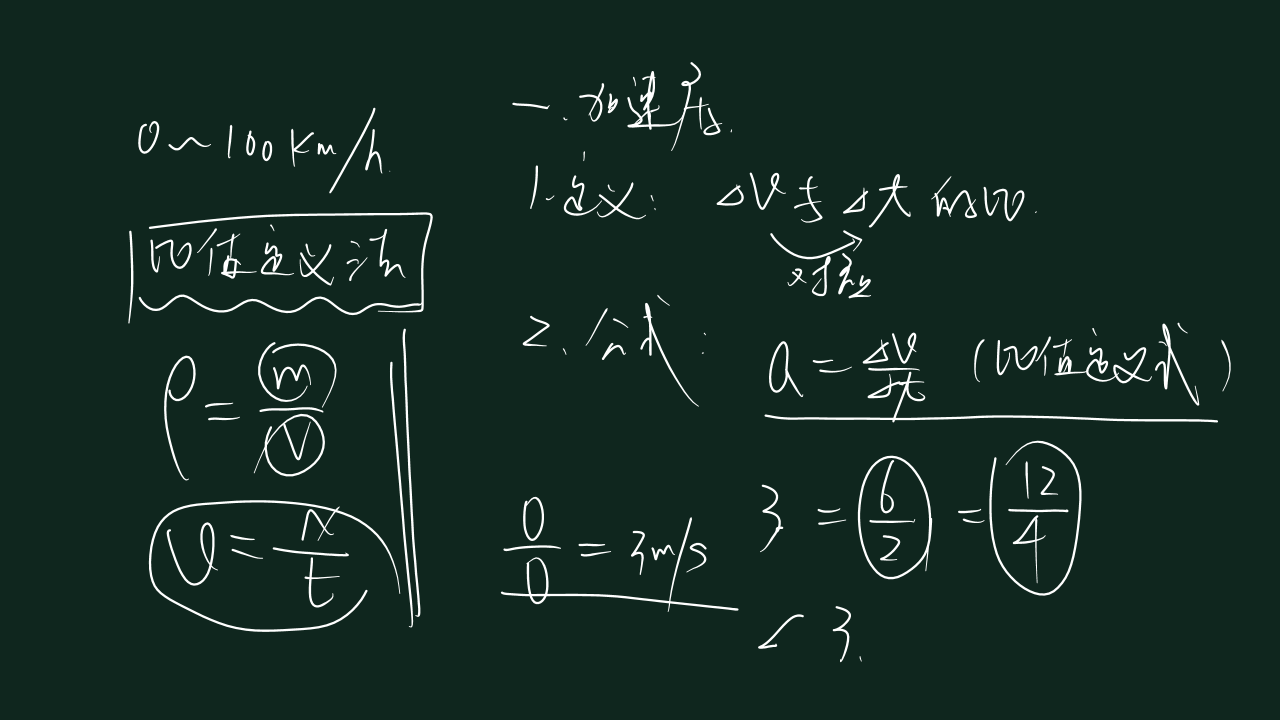 0~100Km/h
比值定义法
ρ = m/V
v = x/t
一. 加速度.
1. 定义: Δv与Δt的比.
对应
2. 公式:
a = Δv/Δt (比值定义式)
0/0 = 3m/s
3 = 6/2 = 12/4
3.